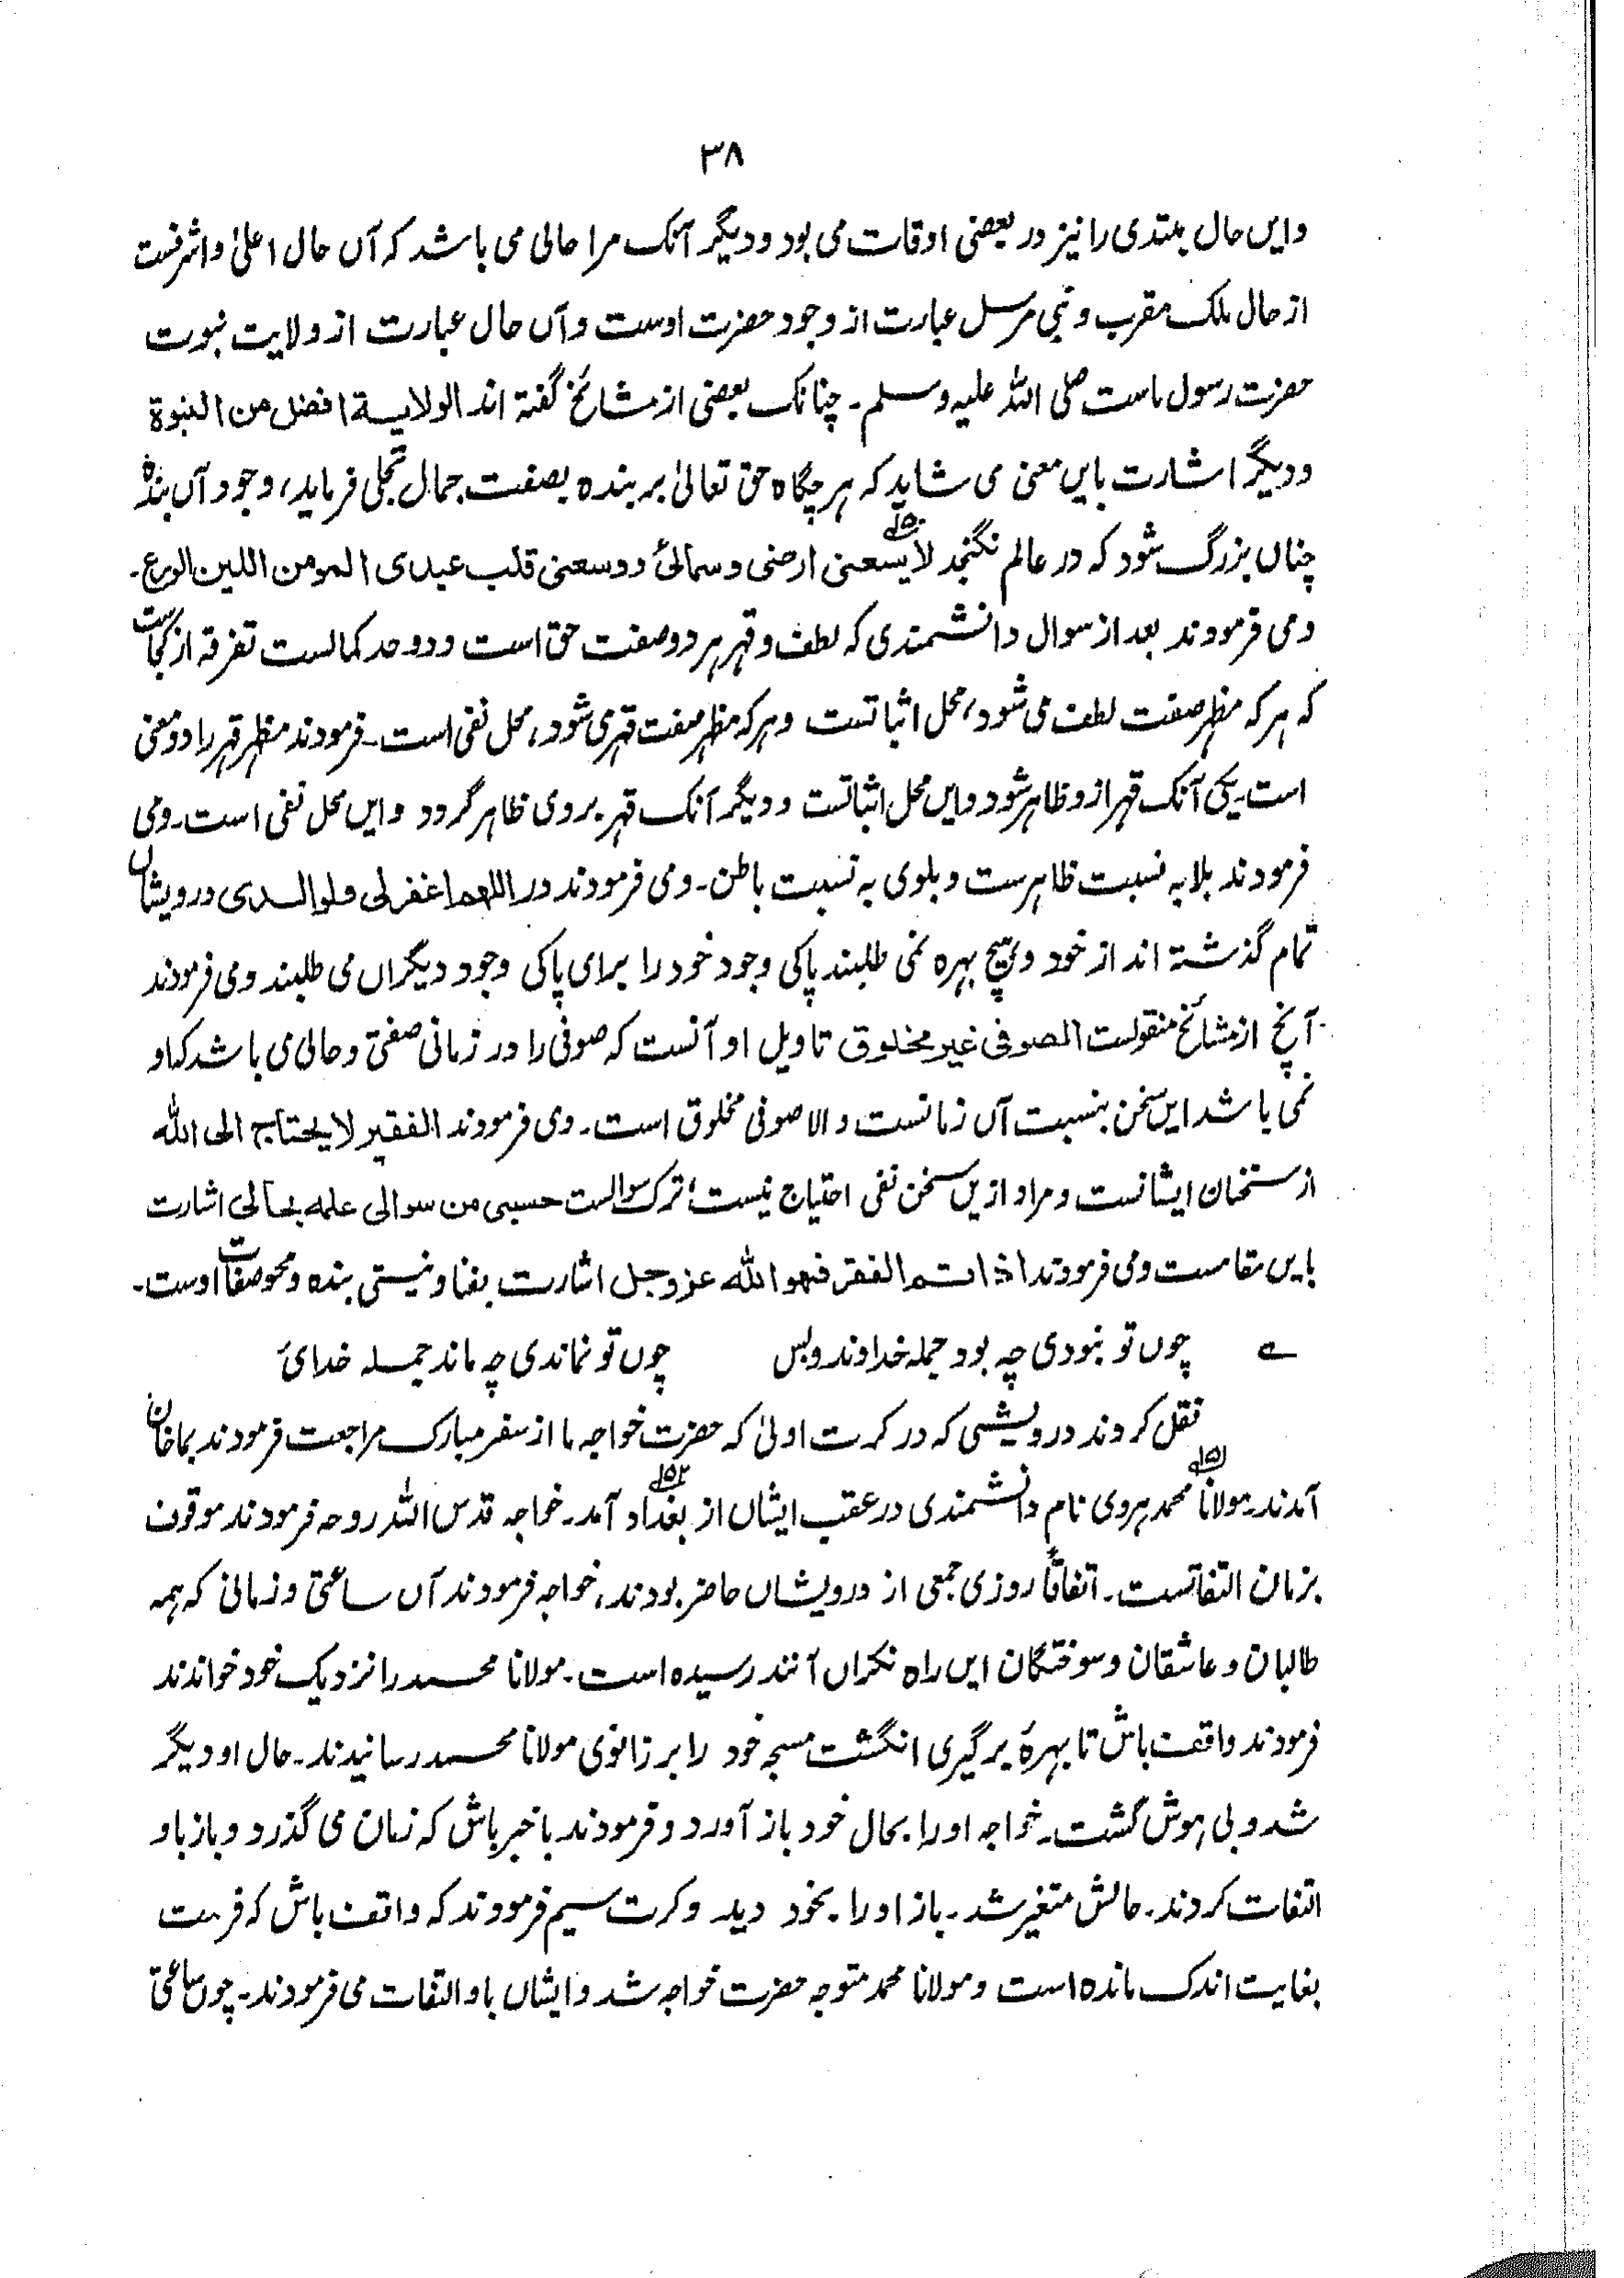 ۳۸
وایں حال بتدی را نیز در بعضی اوقات می بود و دیگر آنک مرا حالی می باشد کہ آں حال اعلیٰ واشرفست
از حال ملک مقرب و نبی مرسل عبارت از وجود حضرت اوست و آں حال عبارت از ولایت نبوت
حضرت رسول ماست صلی اللہ علیہ وسلم۔ چنانک بعضی از مشائخ گفتہ اند الولایۃ افضل من النبوۃ
و دیگر اشارت بایں معنی می شاید کہ ہر چگاہ حق تعالیٰ بر بندہ بصفت جمال تجلی فرماید، وجود آں بندہ
چناں بزرگ شود کہ در عالم نگنجد لا یسعنی ارضی وسمائی و وسعنی قلب عبدی المومن اللین الورع۔ ۱۵۰
و می فرمودند بعد از سوال دانشمندی کہ لطف و قہر ہر دو صفت حق است و دو حد کمالست تفرقہ از کجاست
کہ ہر کہ مظہر صفت لطف می شود، محل اثباتست و ہر کہ مظہر صفت قہر می شود، محل نفی است۔ فرمودند مظہر قہر را دو معنی
است۔ یکی آنک قہر ازو ظاہر شود و ایں محل اثباتست و دیگر آنک قہر بروی ظاہر گردد و ایں محل نفی است۔ و می
فرمودند بلا بہ نسبت ظاہرست و بلوی بہ نسبت باطن۔ و می فرمودند در اللھم اغفر لی ولوالدی درویشان
تمام گذشتہ اند از خود و ہیچ بہرہ نمی طلبند پاکی وجود خود را برای پاکی وجود دیگراں می طلبند و می فرمودند
آنچ از مشائخ منقولست الصوفی غیر مخلوق تاویل او آنست کہ صوفی را در زمانی صفتی و حالی می باشد کہ او
نمی باشد ایں سخن بنسبت آں زمانست و الا صوفی مخلوق است۔ و می فرمودند الفقیر لا یحتاج الی اللہ
از سخنان ایشانست و مراد ازیں سخن نفی احتیاج نیست، ترک سوالست حسبی من سوالی علمہ بحالی اشارت
بایں مقامست و می فرمودند اذا تم الفقر فھو اللہ عزوجل اشارت بفنا و نیستی بندہ و محو صفات اوست۔
چوں تو نبودی چہ بود جملہ خداوند و بس چوں تو نماندی چہ ماند جملہ خدائ
نقل کردند درویشی کہ در کرت اولیٰ کہ حضرت خواجہ ما از سفر مبارک مراجعت فرمودند بماخان
آمدند۔ مولانا ۱۵۱ محمد ہروی نام دانشمندی در عقب ایشاں از بغداد ۱۵۲ آمد۔ خواجہ قدس اللہ روحہ فرمودند موقوف
بزمان التفاتست۔ اتفاقاً روزی جمعی از درویشاں حاضر بودند، خواجہ فرمودند آں ساعتی و زمانی کہ ہمہ
طالبان و عاشقان و سوختگان ایں راہ نگراں آنند رسیدہ است۔ مولانا محمد را نزدیک خود خواندند
فرمودند واقف باش تا بہرۂ برگیری انگشت مسبحہ خود را بر زانوی مولانا محمد رسانیدند۔ حال او دیگر
شد و بی ہوش گشت۔ خواجہ او را بحال خود باز آورد و فرمودند باخبر باش کہ زمان می گذرد و باز باو
التفات کردند۔ حالش متغیر شد۔ باز او را بخود دید و کرت سیم فرمودند کہ واقف باش کہ فرصت
بغایت اندک ماندہ است و مولانا محمد متوجہ حضرت خواجہ شد و ایشاں باو التفات می فرمودند۔ چوں ساعتی